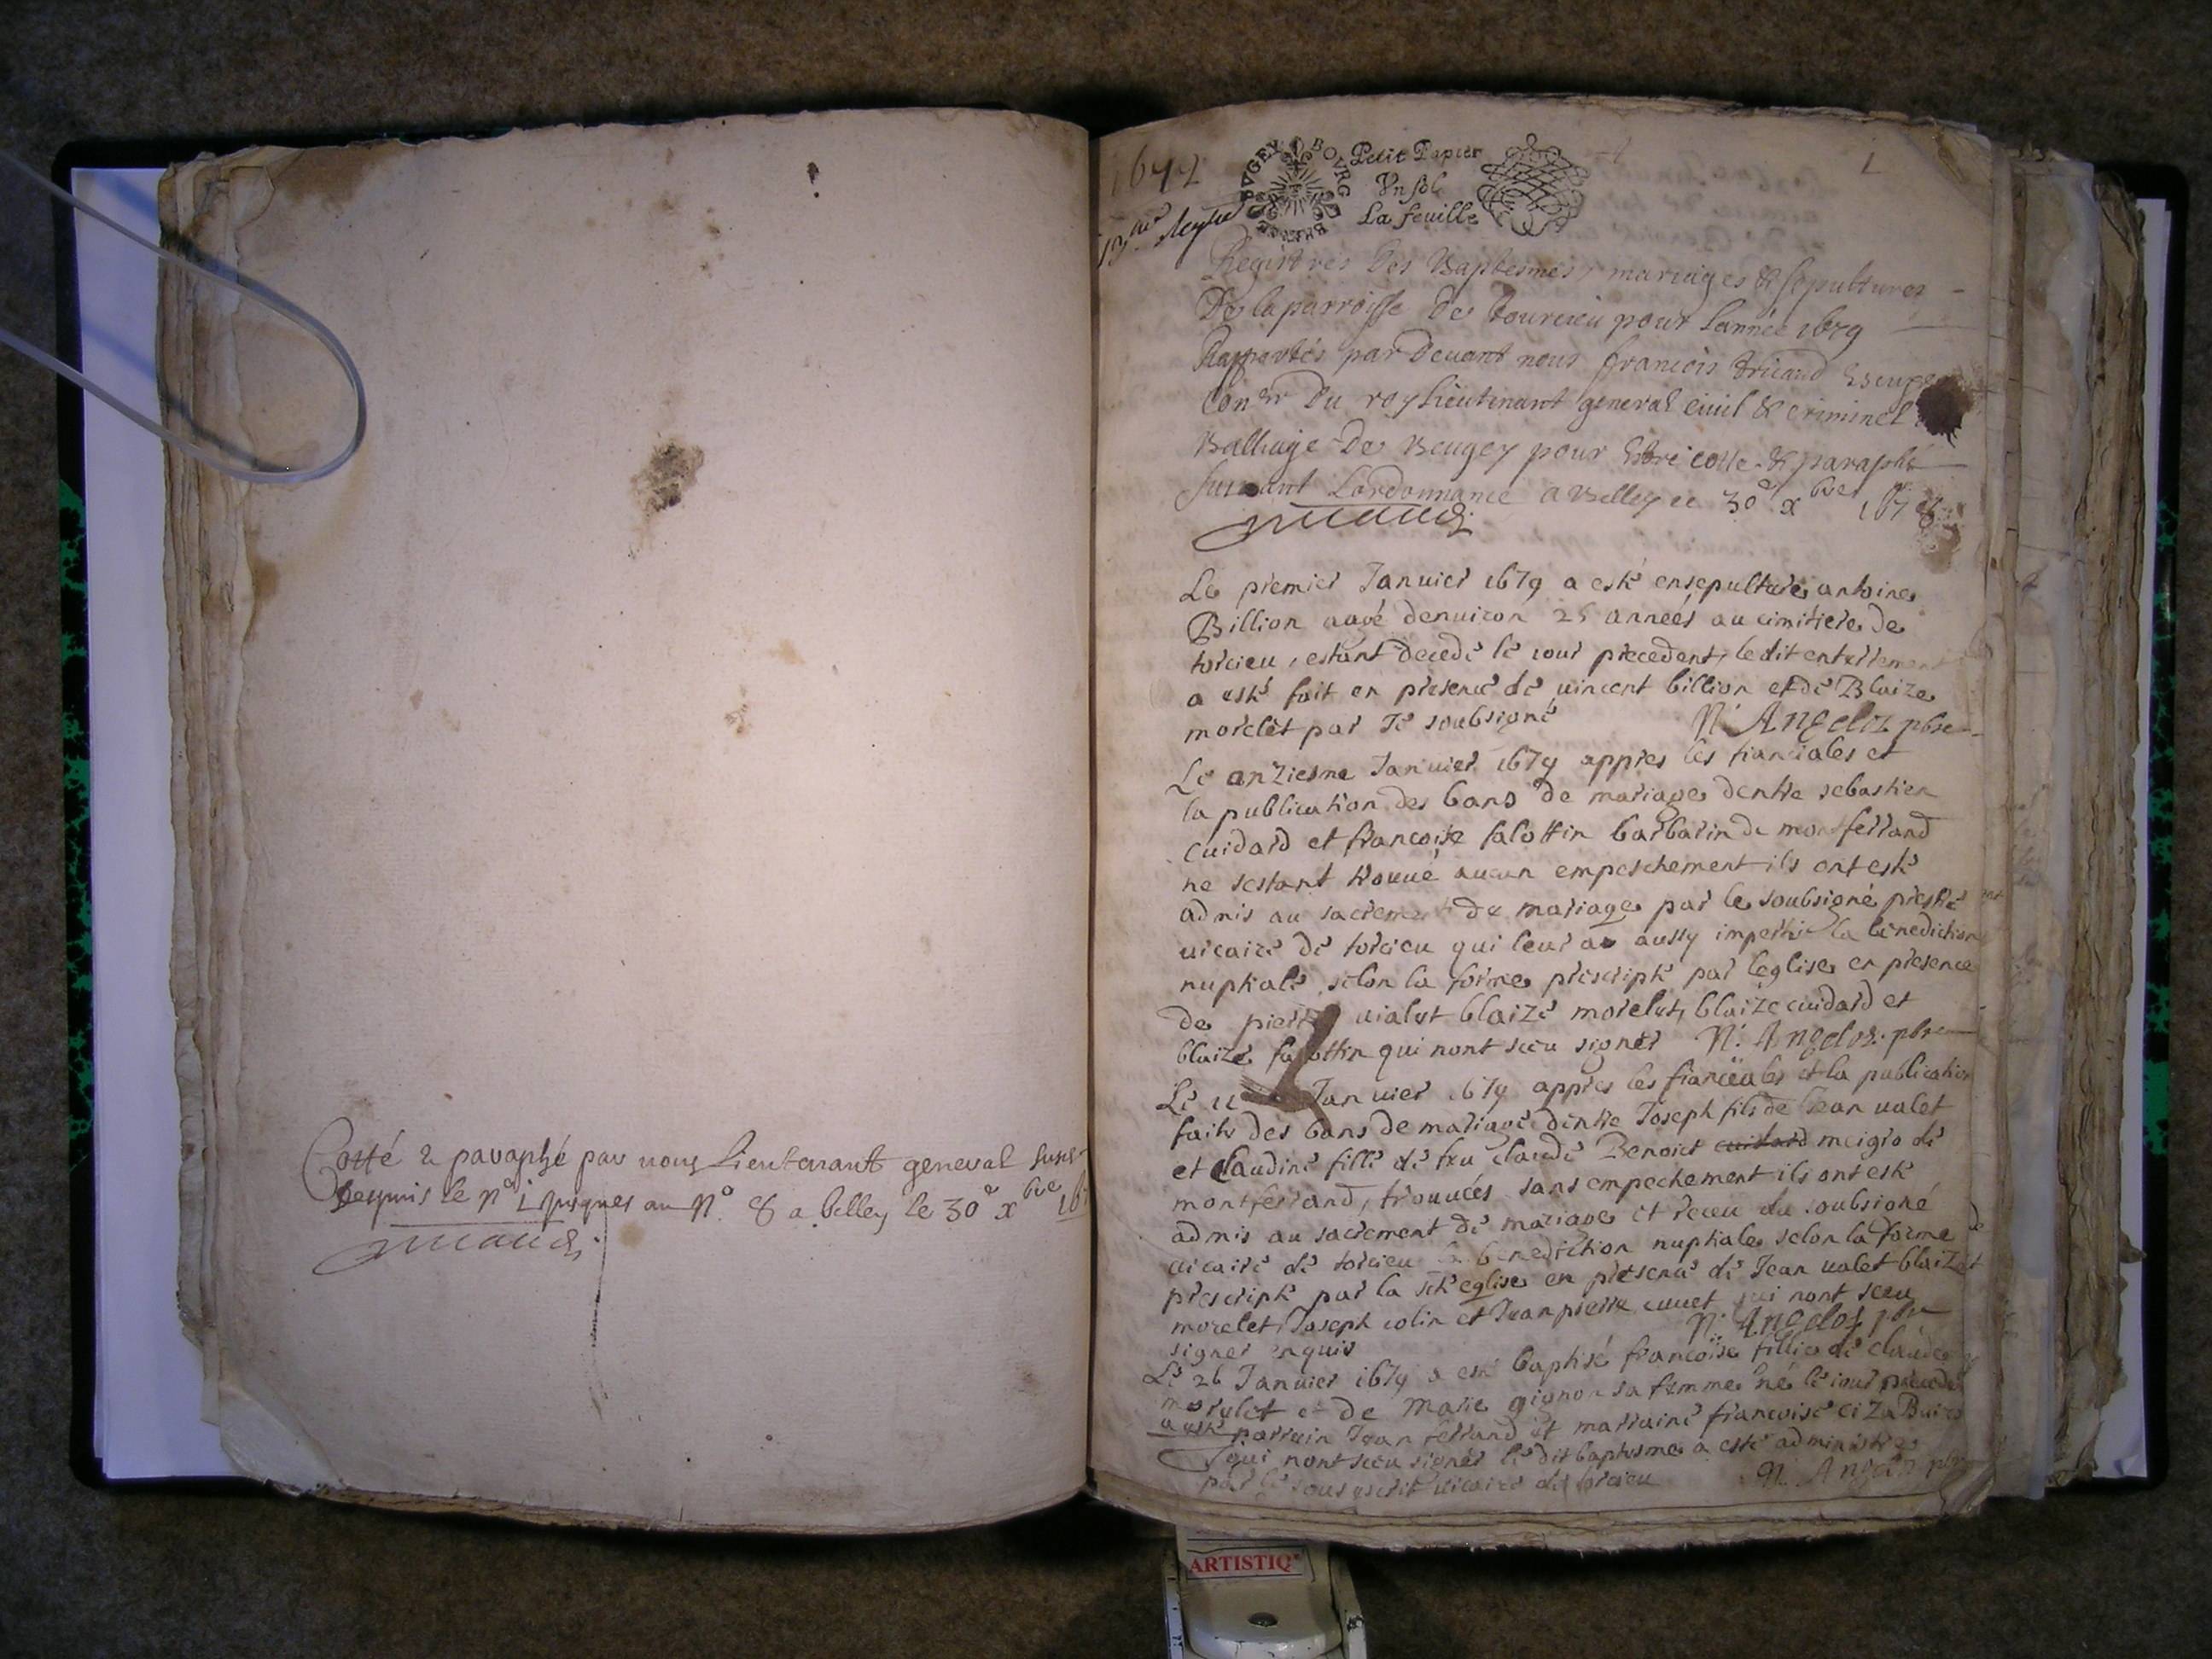 Cotté & paraphé par nous Lieutenant general
Depuis le n° 1 jusques au N° 8 a belley le 30e xbre 167
1679
BVGEY BOVRG
Petit Papier
Vn sol
La feuille
1
Registres des Baptesmes, mariages & sepultures
De la parroisse De tourcieu pour Lannée 1679
Rapportés par Devant nous françois tricaud Escuyer
Con.er Du roy Lieutenant general ciuil & criminel
Balliage De Beugey pour Estre cotté & paraphé
suiuant Lordonnance a Belley ce 30e xbre 1678
Le premier Januier 1679 a esté ensepulturé antoine
Billion aagé denuiron 25 années au cimitiere de
torcieu, estant decedé le iour precedent, le dit enterrement
a esté fait en presence de uincent billion et de Blaize
morelet par Je soubsigné N. Angeloz pbre
Le onziesme Januier 1679 appres les fiancailes et
la publication des bans de mariage dentre sebastien
cuidard et francoise falottin barbarin de montferrand
ne sestant trouué aucun empeschement ils ont esté
admis au sacrement de mariage par le soubsigné prestre
uicaire de torcieu qui leur a aussy imperti la benediction
nuptiale selon la forme prescripte par leglise en presence
de pierre uialet blaize morelet, blaize cuidard et
blaize falottin qui nont sceu signer N. Angeloz pbre
Le Januier 1679 appres les fianceailes et la publication
faite des bans de mariage dentre Joseph fils de Jean ualet
et Claudine fille de feu claude Benoict cuidard meigro de
montferrand, trouuées sans empechement ils ont esté
admis au sacrement de mariage et receu du soubsigné
uicaire de torcieu la benediction nuptiale selon la forme
prescripte par la ste eglise en presence de Jean ualet blaize
morelet, Joseph colin et Jean pierre cuuet qui nont sceu
signer enquis N. Angeloz pbre
Le 26 Januier 1679 a esté baptisé francoise fillie de claude
morelet et de Marie gignon sa femme né le iour precedent
a esté parrain Jean ferrand et marraine francoise
qui nont sceu signer le dit baptesme a esté administré
par le sous escrit uicaire de torcieu N. Angeloz pbre
ARTISTIQ